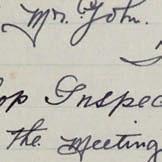 Mr. John.
op Inspec
the meeting